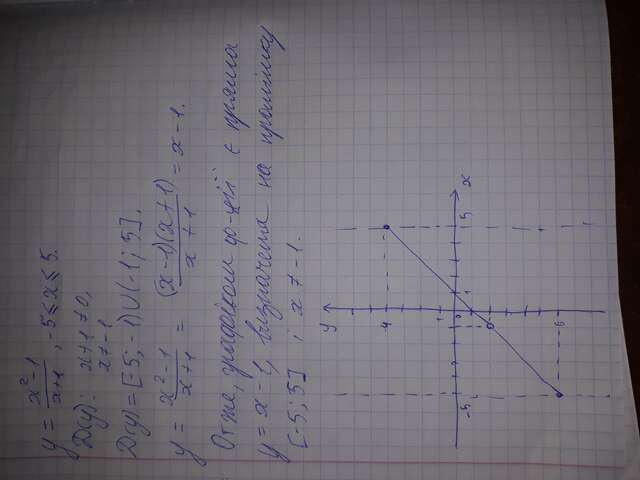 y = x² - 1 / x + 1, -5 ≤ x ≤ 5.
D(y): x + 1 ≠ 0,
x ≠ -1
D(y) = [-5; -1) ∪ (-1; 5].
y = x² - 1 / x + 1 = (x - 1)(x + 1) / x + 1 = x - 1.
Отже, графіком ф-ції є пряма
y = x - 1, визначена на проміжку
[-5; 5] і x ≠ -1.
y
x
-4
1
1
5
-5
-6